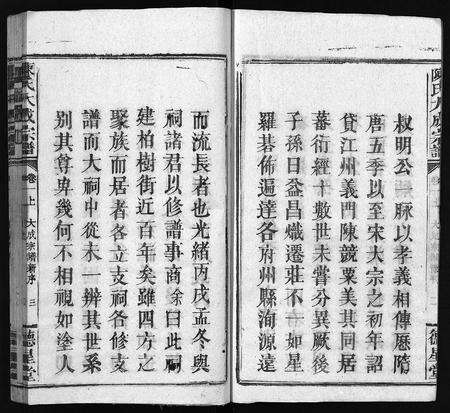 陳氏大成宗譜
權明公脈以孝義相傳歷隋
唐五季以至宋大宗之初年詔
貸江州義門陳競粟美其同居
蕃衍經十數世未嘗分異厥後
子孫日益昌熾遷莊不一如星
羅碁佈遍達各府州縣洵源遠
德星堂
而流長者也光緒丙戌孟冬與
祠諸君以修譜事商余曰此祠
建柏樹街近百年矣雖四方之
聚族而居者各立支祠各修支
譜而大祠中從未一辨其世系
別其尊卑幾何不相視如塗人
陳氏大成宗譜
卷一上
大成宗譜新序
三
德星堂